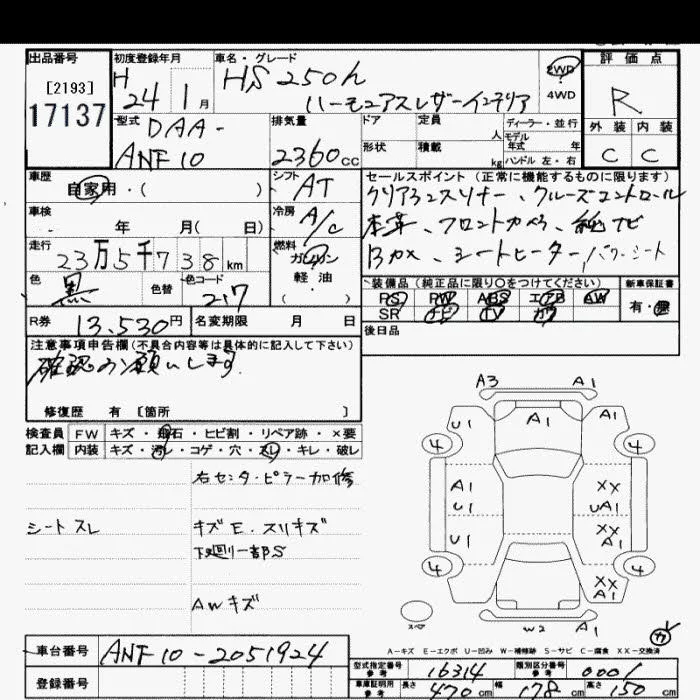 出品番号
[2193]
17137
初度登録年月
H 24 1月
車名・グレード
HS 250h
ハーモニアスレザーインテリア
2WD
4WD
評価点
R
外装 内装
C C
型式
DAA-
ANF10
排気量
2360cc
ドア 定員 人
形状 積載 kg
ディーラー・並行
モデル
年式 年
ハンドル 左・右
車歴
自家用・( )
シフト
AT
セールスポイント(正常に機能するものに限ります)
クリアランスソナー、クルーズコントロール
本革、フロントカメラ、純ナビ
Bカメ、シートヒーター、パワーシート
車検
年 月( 日)
冷房
A/C
走行
23万5千738km
燃料
ガソリン
軽油
( )
色
黒
色替
色コード
217
装備品(純正品に限り○をつけてください)
新車保証書
PS PW ABS エアB AW
SR ナビ TV カワ
有・無
R券
13,530円
名変期限 月 日
後日品
注意事項申告欄(不具合内容等は具体的に記入して下さい)
確認お願いします。
修復歴 有 [箇所 ]
検査員
記入欄
FW キズ・飛石・ヒビ割・リペア跡・×要
内装 キズ・汚レ・コゲ・穴・スレ・キレ・破レ
右センターピラー加修
シートスレ
キズE.スリキズ
下廻り一部S
AWキズ
A3 A1
U1 A1 A1
4 4
A1 XX
U1 UA1
U1 XX
A1
4 4
XX
A1
W2 A1
スペア
カ
A-キズ E-エクボ U-凹み W-補修跡 S-サビ C-腐食 XX-交換済
車台番号
ANF10-2051924
登録番号
型式指定番号
参考
16314
類別区分番号
参考
0001
車庫証明用
参考
長さ 470cm 幅 178cm 高さ 150cm